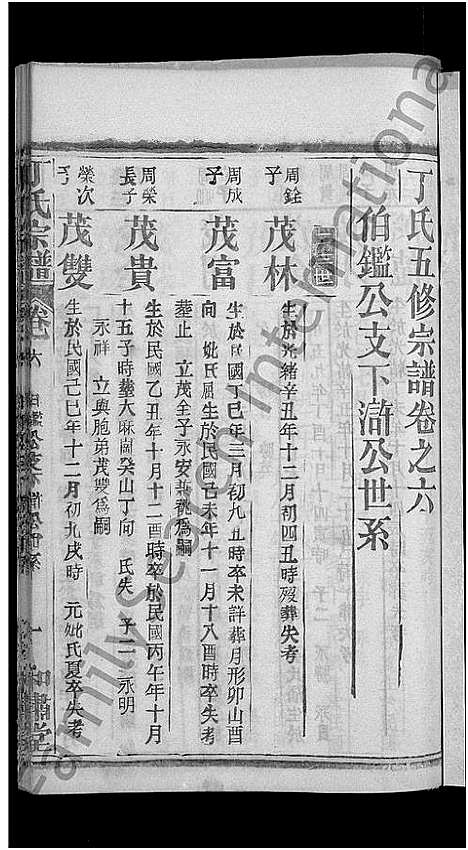 丁氏五修宗譜卷之六
伯鑑公支下滸公世系
周銓
子
茂林
生於光緒辛丑年十二月初四丑時歿葬失考
周成
子
茂富
生於民國丁巳年三月初九丑時卒未詳葬月形卯山酉
向 妣氏屈生於民國己未年十一月十八酉時卒失考
葬止 立茂全子永安兼祧爲嗣
周榮
長子
茂貴
生於民國乙丑年十月十二酉時卒於民國丙午年十月
十五子時葬大麻崗癸山丁向 氏失 子二 永明
永祥 立與胞弟茂雙爲嗣
榮次
子
茂雙
生於民國己巳年十二月初九戌時 元妣氏夏卒失考
丁氏宗譜
卷之六
一
堂
FamilySearch International